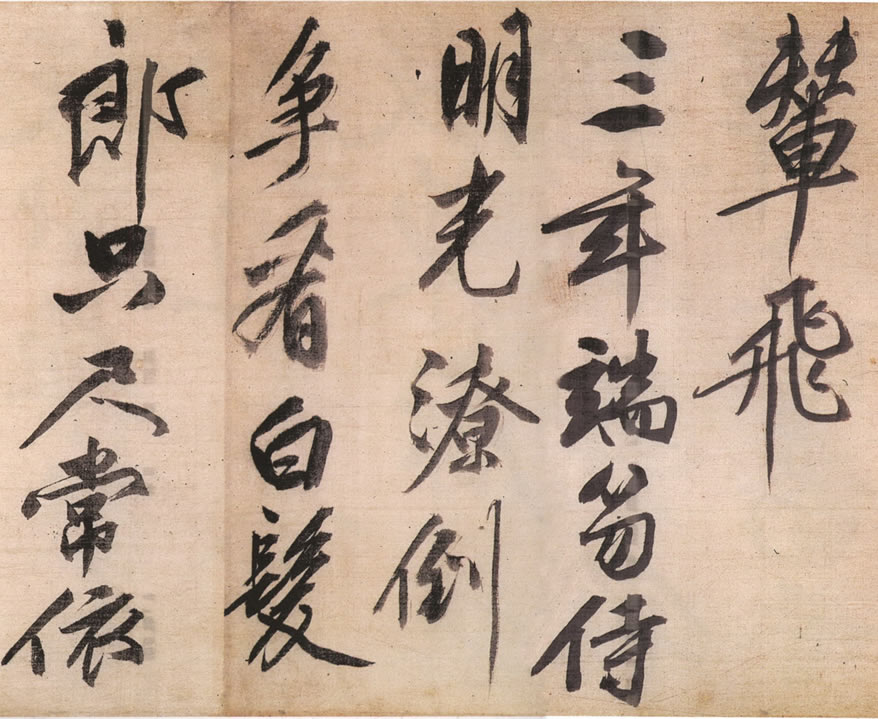 輦飛
三年端笏侍
明光潦倒
争看白髮
郎只尺常依